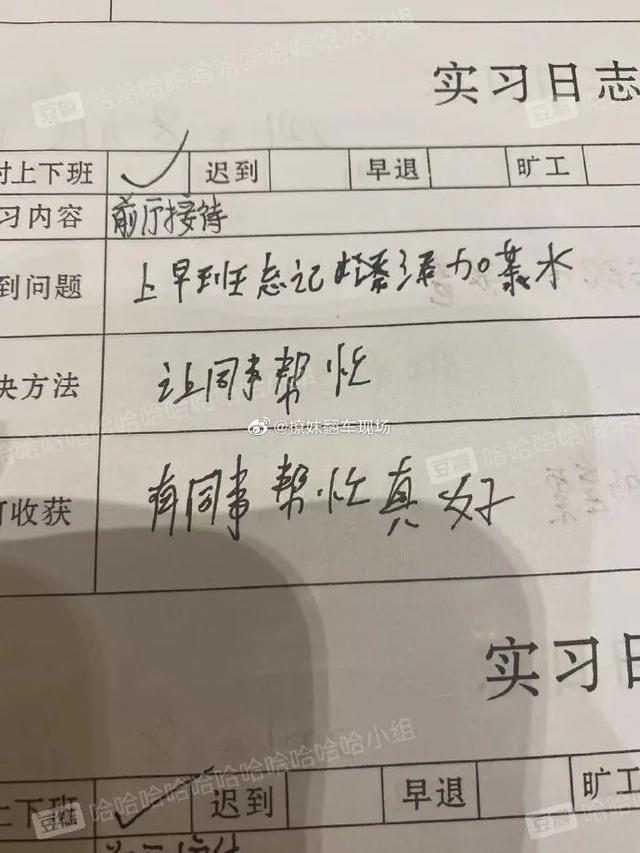 哈哈哈哈哈哈哈哈哈小组
豆瓣
实习日志
时上下班 ✓ 迟到 早退 旷工
习内容 前厅接待
到问题 上早班忘记烧香添加茶水
决方法 让同事帮忙
@撩妹翻车现场
豆瓣 哈哈哈哈
收获 有同事帮忙真好
实习日
哈哈哈哈哈哈哈哈哈小组
上下班 ✓ 迟到 早退 旷工
豆瓣
豆瓣